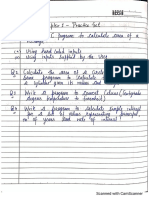 Chapter 1 - Practice Set
a C program to calculate area of a
(a) Using hard coded inputs
(b) Using inputs supplied by the user
Calculate the area of a circle
a cylinder given its radius and
Write a program to convert Celsius (Centigrade
degrees temperature to Fahrenheit)
Write a program to calculate simple interest
for a set of values representing principal, no
of years and rate of interest
Scanned with CamScanner